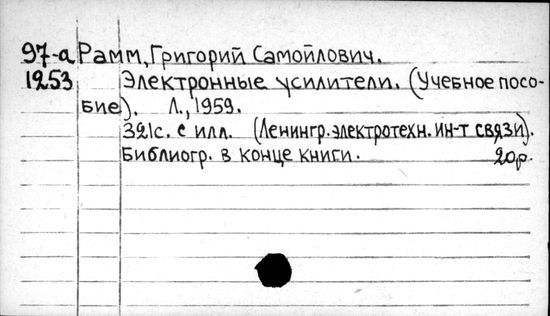 97-а Рамм, Григорий Самойлович.
1253 Электронные усилители. (Учебное пособие). Л., 1959.
321с. с илл. (Ленингр. электротехн. ин-т связи).
Библиогр. в конце книги. 20р.